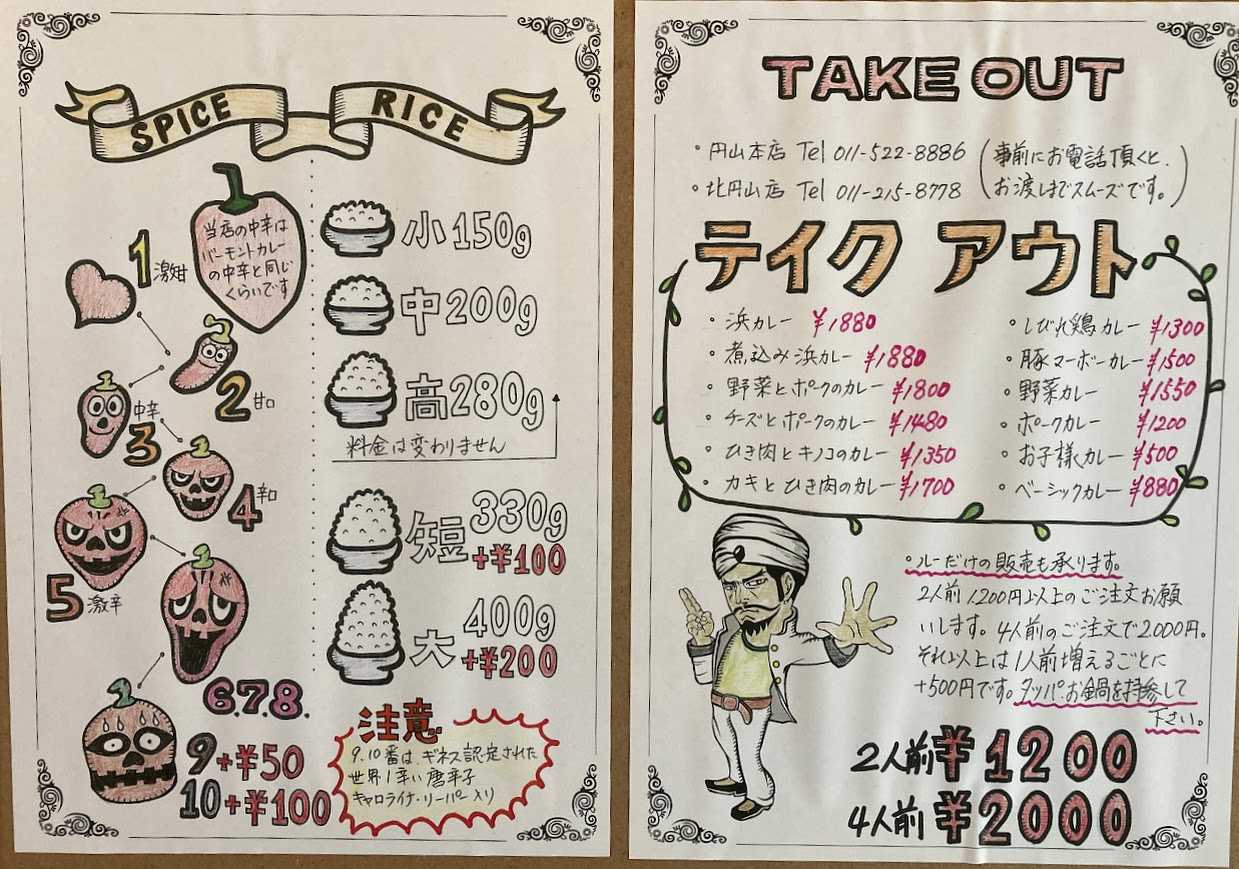 SPICE RICE
1 激甘
当店の中辛は
バーモントカレー
の中辛と同じ
くらいです
2 甘口
3 中辛
4 辛口
5 激辛
6.7.8.
9 +¥50
10 +¥100
小 150g
中 200g
高 280g
料金は変わりません
短 330g
+¥100
大 400g
+¥200
注意
9.10番は、ギネス認定された
世界1辛い唐辛子
キャロライナ・リーパー入り
TAKE OUT
・円山本店 Tel 011-522-8886
・北円山店 Tel 011-215-8778
(事前にお電話頂くと、
お渡しまでスムーズです。)
テイク アウト
・浜カレー ¥1880
・煮込み浜カレー ¥1880
・野菜とポークのカレー ¥1800
・チーズとポークのカレー ¥1480
・ひき肉とキノコのカレー ¥1350
・カキとひき肉のカレー ¥1700
・しびれ鶏カレー ¥1300
・豚マーボーカレー ¥1500
・野菜カレー ¥1550
・ポークカレー ¥1200
・お子様カレー ¥500
・ベーシックカレー ¥880
・ルーだけの販売も承ります。
2人前1200円以上のご注文お願
いします。4人前のご注文で2000円。
それ以上は1人前増えるごとに
+500円です。タッパ、お鍋を持参して
下さい。
2人前 ¥1200
4人前 ¥2000